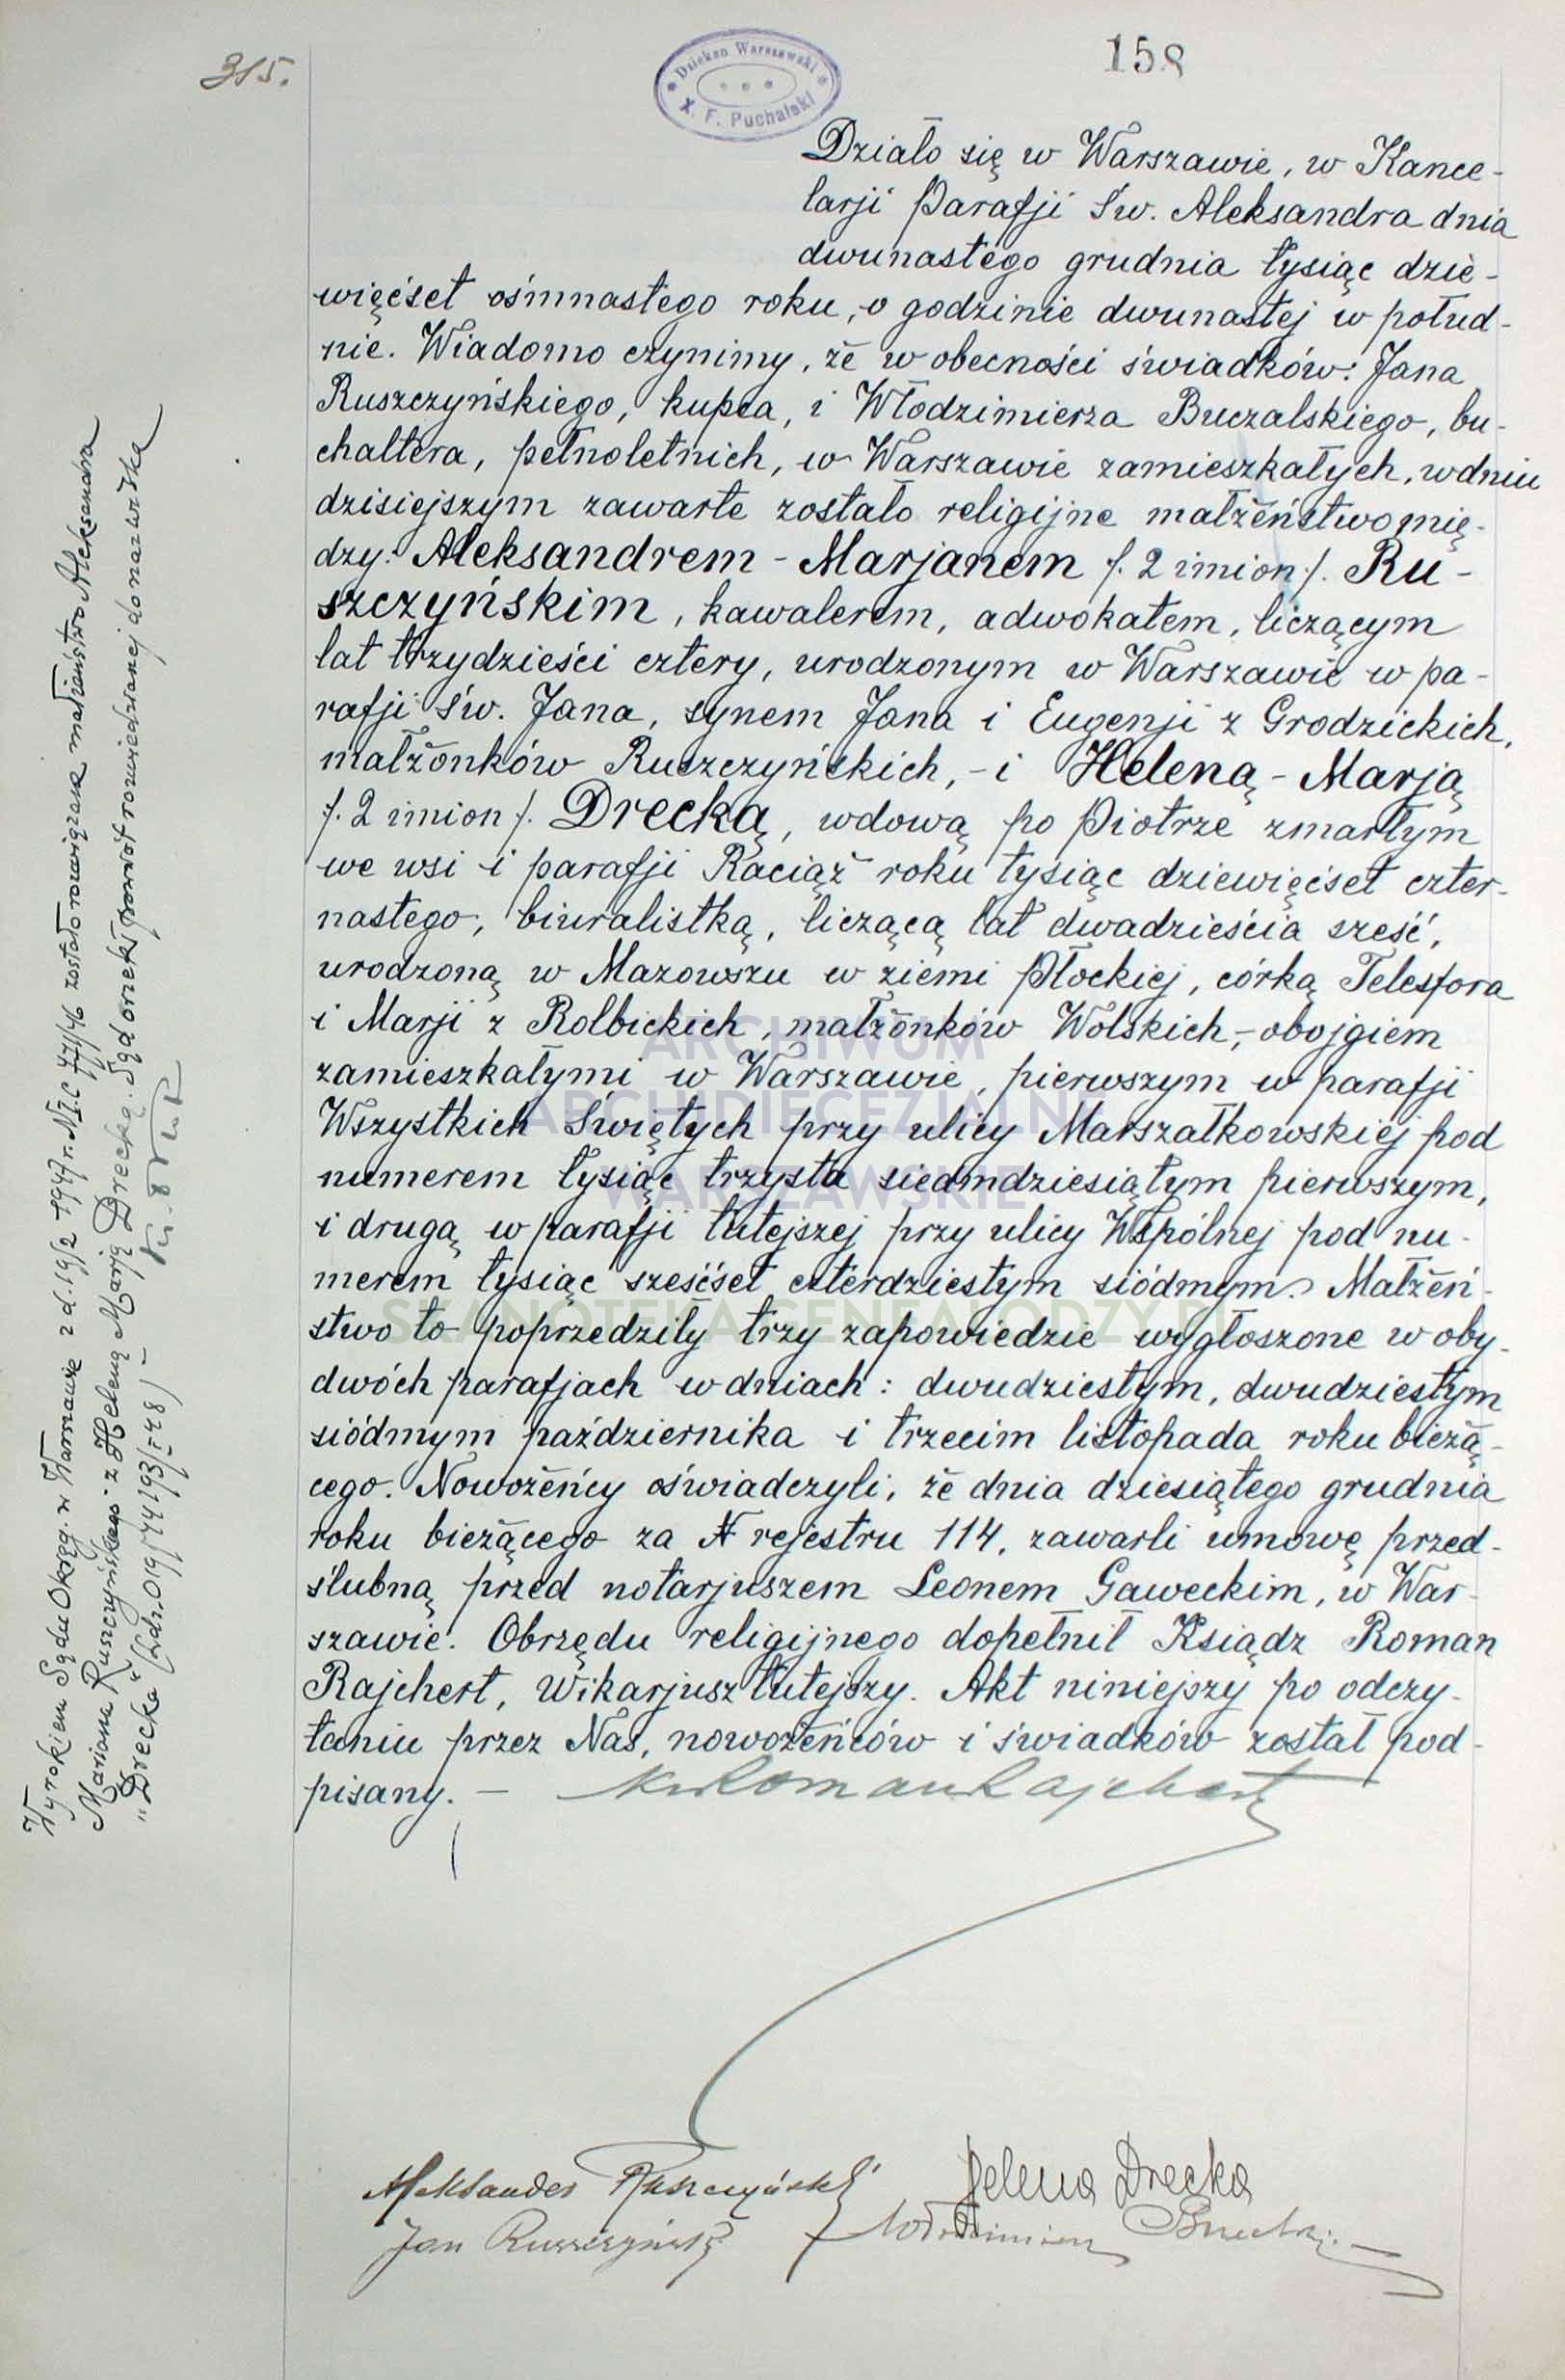 315.
Dziekan Warszawski
X. F. Puchalski
158
Działo się w Warszawie, w Kance-
larji Parafji Św. Aleksandra dnia
dwunastego grudnia tysiąc dzie-
więćset ośmnastego roku, o godzinie dwunastej w połud-
nie. Wiadomo czynimy, że w obecności świadków: Jana
Ruszczyńskiego, kupca, i Włodzimierza Buczalskiego, bu-
chaltera, pełnoletnich, w Warszawie zamieszkałych, w dniu
dzisiejszym zawarte zostało religijne małżeństwo mię-
dzy: Aleksandrem - Marjanem /. 2 imion /. Ru-
szczyńskim, kawalerem, adwokatem, liczącym
lat trzydzieści cztery, urodzonym w Warszawie w pa-
rafji Św. Jana, synem Jana i Eugenji z Grodzickich,
małżonków Ruszczyńskich, - i Heleną - Marją
/. 2 imion /. Drecką, wdową po Piotrze zmarłym
we wsi i parafji Raciąż roku tysiąc dziewięćset czter-
nastego, biuralistką, liczącą lat dwadzieścia sześć,
urodzoną w Mazowszu w ziemi Płockiej, córką Telesfora
i Marji z Rolbickich, małżonków Wolskich, - obojgiem
zamieszkałymi w Warszawie, pierwszym w parafji
Wszystkich Świętych przy ulicy Marszałkowskiej pod
numerem tysiąc trzysta siedmdziesiątym pierwszym,
i drugą w parafji tutejszej przy ulicy Wspólnej pod nu-
merem tysiąc sześćset czterdziestym siódmym. Małżeń-
stwo to poprzedziły trzy zapowiedzie wygłoszone w oby-
dwóch parafjach w dniach: dwudziestym, dwudziestym
siódmym października i trzecim listopada roku bieżą-
cego. Nowożeńcy oświadczyli, że dnia dziesiątego grudnia
roku bieżącego za N rejestru 114, zawarli umowę przed-
ślubną przed notarjuszem Leonem Gaweckim, w War-
szawie. Obrzędu religijnego dopełnił Ksiądz Roman
Rajchert, Wikarjusz tutejszy. Akt niniejszy po odczy-
taniu przez Nas, nowożeńców i świadków został pod-
pisany. - Ks Roman Rajchert
Aleksander Ruszczyński Helena Drecka
Jan Ruszczyński Włodzimierz
Wyrokiem Sądu Okręg. w Warszawie z d. 19/2 1947 r. N I. C 771/46 zostało rozwiązane małżeństwo Aleksandra
Mariana Ruszczyńskiego z Heleną Marją Drecką. Sąd orzekł powrót rozwiedzionej do nazwiska
"Drecka" (
ARCHIWUM
ARCHIDIECEZJALNE
WARSZAWSKIE
SKANOTEKA.GENEALODZY.PL